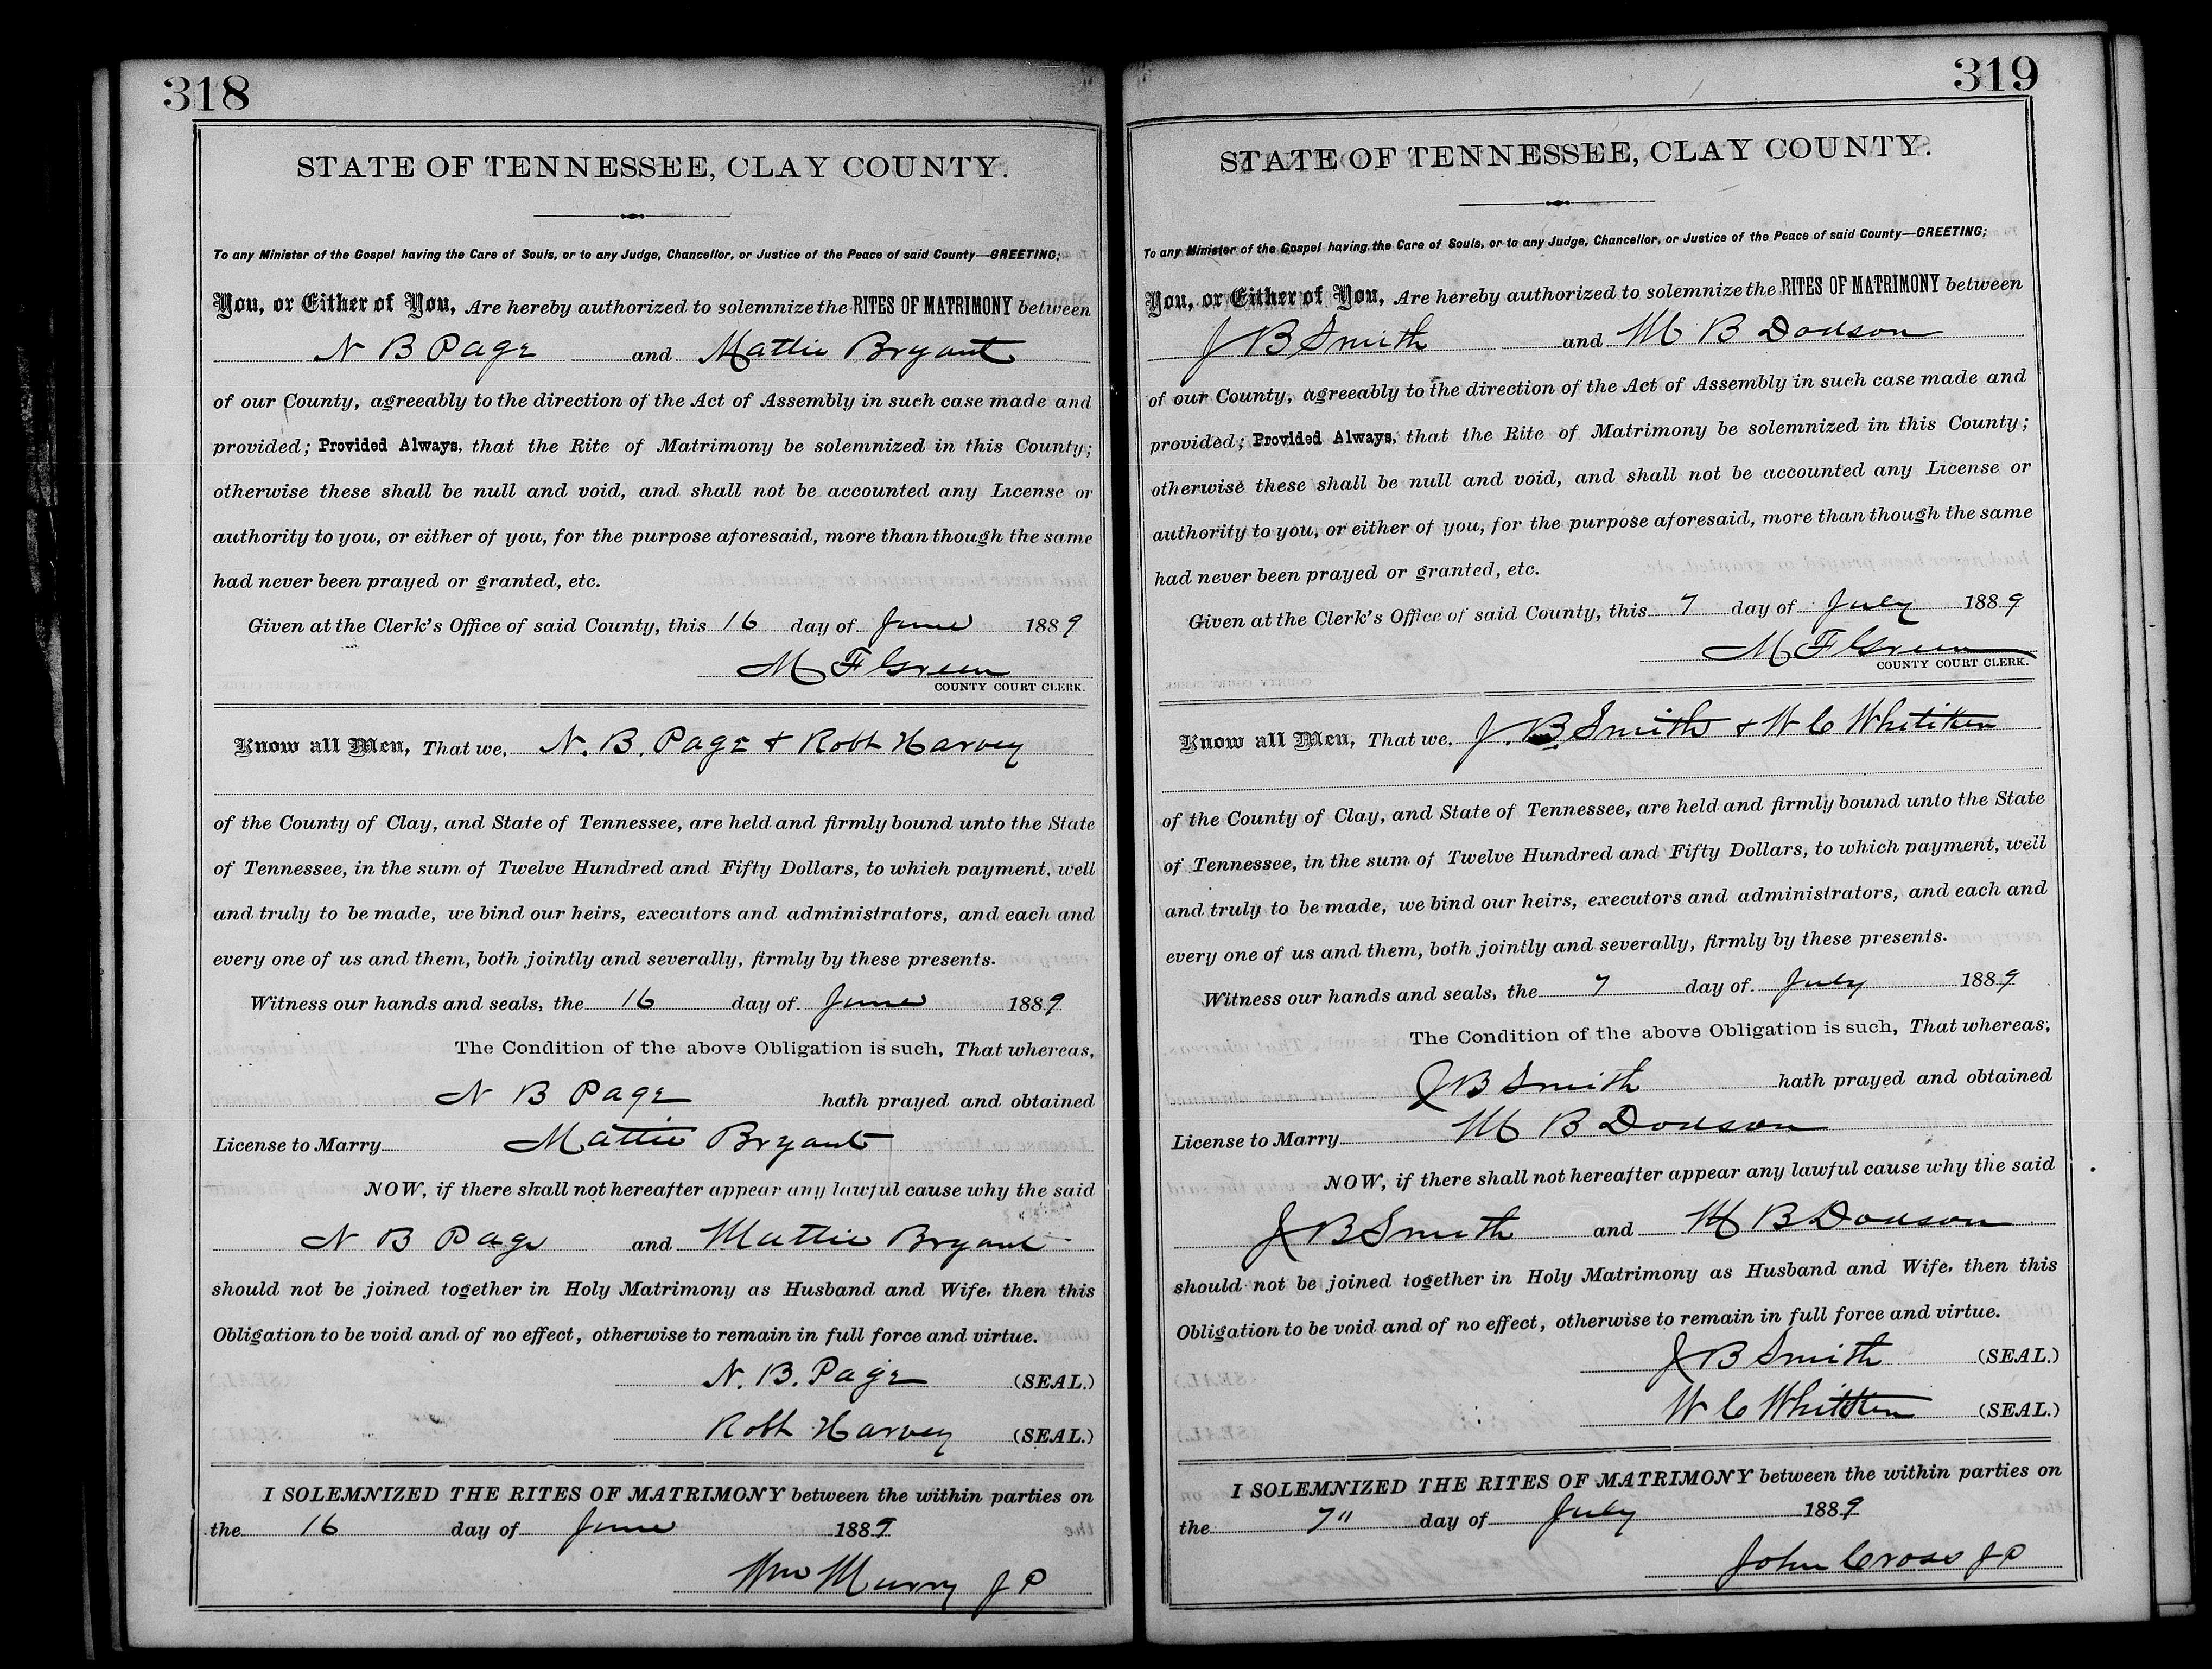 318
STATE OF TENNESSEE, CLAY COUNTY.
To any Minister of the Gospel having the Care of Souls, or to any Judge, Chancellor, or Justice of the Peace of said County—GREETING;
You, or Either of You, Are hereby authorized to solemnize the RITES OF MATRIMONY between
N B Page and Mattie Bryant
of our County, agreeably to the direction of the Act of Assembly in such case made and
provided; Provided Always, that the Rite of Matrimony be solemnized in this County;
otherwise these shall be null and void, and shall not be accounted any License or
authority to you, or either of you, for the purpose aforesaid, more than though the same
had never been prayed or granted, etc.
Given at the Clerk's Office of said County, this 16 day of June 1889
M F Green
COUNTY COURT CLERK.
Know all Men, That we, N. B. Page + Robt Harvey
of the County of Clay, and State of Tennessee, are held and firmly bound unto the State
of Tennessee, in the sum of Twelve Hundred and Fifty Dollars, to which payment, well
and truly to be made, we bind our heirs, executors and administrators, and each and
every one of us and them, both jointly and severally, firmly by these presents.
Witness our hands and seals, the 16 day of June 1889
The Condition of the above Obligation is such, That whereas,
N B Page hath prayed and obtained
License to Marry Mattie Bryant
NOW, if there shall not hereafter appear any lawful cause why the said
N B Page and Mattie Bryant
should not be joined together in Holy Matrimony as Husband and Wife, then this
Obligation to be void and of no effect, otherwise to remain in full force and virtue.
N. B. Page (SEAL.)
Robt Harvey (SEAL.)
I SOLEMNIZED THE RITES OF MATRIMONY between the within parties on
the 16 day of June 1889
Wm Murry J P
319
STATE OF TENNESSEE, CLAY COUNTY.
To any Minister of the Gospel having the Care of Souls, or to any Judge, Chancellor, or Justice of the Peace of said County—GREETING;
You, or Either of You, Are hereby authorized to solemnize the RITES OF MATRIMONY between
J B Smith and M B Dodson
of our County, agreeably to the direction of the Act of Assembly in such case made and
provided; Provided Always, that the Rite of Matrimony be solemnized in this County;
otherwise these shall be null and void, and shall not be accounted any License or
authority to you, or either of you, for the purpose aforesaid, more than though the same
had never been prayed or granted, etc.
Given at the Clerk's Office of said County, this 7 day of July 1889
M F Green
COUNTY COURT CLERK.
Know all Men, That we, J. B. Smith + W C Whitiken
of the County of Clay, and State of Tennessee, are held and firmly bound unto the State
of Tennessee, in the sum of Twelve Hundred and Fifty Dollars, to which payment, well
and truly to be made, we bind our heirs, executors and administrators, and each and
every one of us and them, both jointly and severally, firmly by these presents.
Witness our hands and seals, the 7 day of July 1889
The Condition of the above Obligation is such, That whereas,
J B Smith hath prayed and obtained
License to Marry M B Dodson
NOW, if there shall not hereafter appear any lawful cause why the said
J B Smith and M B Dodson
should not be joined together in Holy Matrimony as Husband and Wife, then this
Obligation to be void and of no effect, otherwise to remain in full force and virtue.
J B Smith (SEAL.)
W C Whittten (SEAL.)
I SOLEMNIZED THE RITES OF MATRIMONY between the within parties on
the 7" day of July 1889
John Cross J P